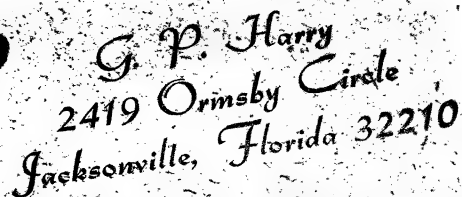 G. P. Harry
2419 Ormsby Circle
Jacksonville, Florida 32210